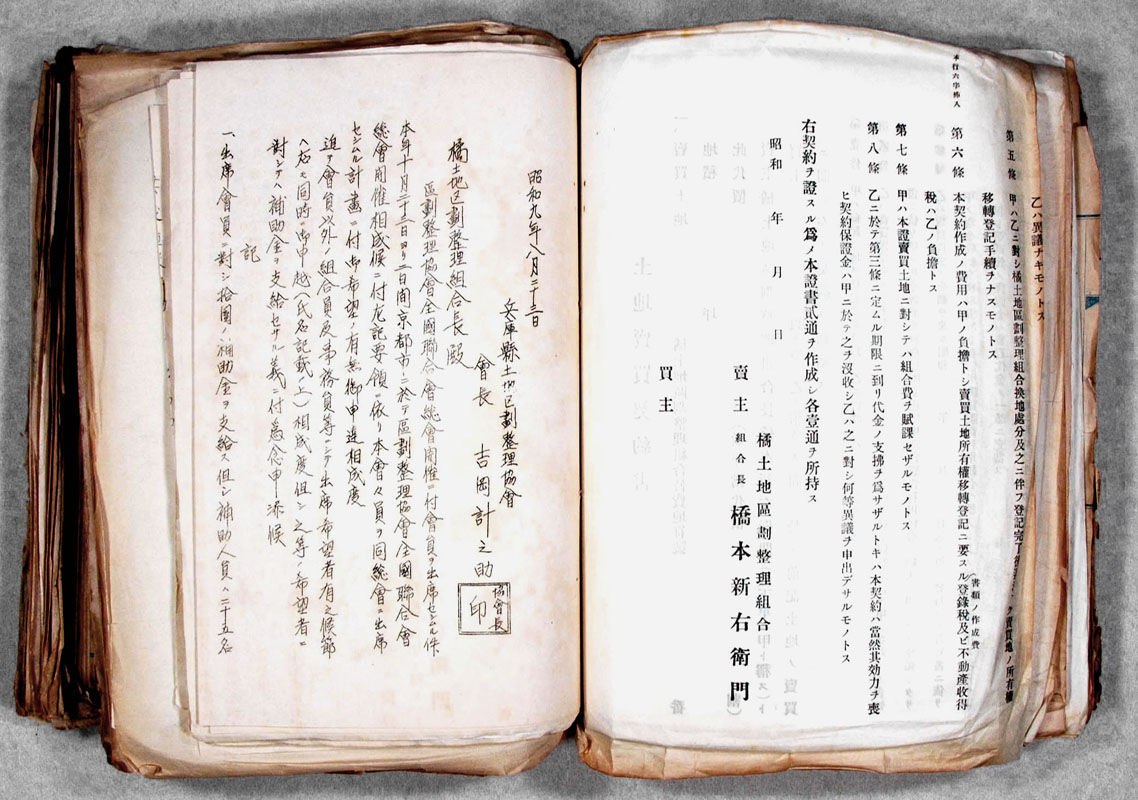 乙ハ異議ナキモノトス
第五條 甲ハ乙ニ對シ橘土地區劃整理組合換地處分及之ニ伴フ登記完了
賣買地ノ所有權
移轉登記手續ヲナスモノトス
(書類ノ作成費
第六條 本契約作成ノ費用ハ甲ノ負擔トシ賣買土地所有權移轉登記ニ要スル登錄稅及ビ不動產收得
本行六字挿入
稅ハ乙ノ負擔トス
第七條 甲ハ本證賣買土地ニ對シテハ組合費ヲ賦課セザルモノトス
第八條 乙ニ於テ第三條ニ定ムル期限ニ到リ代金ノ支拂ヲ爲サザルトキハ本契約ハ當然其効力ヲ喪
ヒ契約保證金ハ甲ニ於テ之ヲ沒收シ乙ハ之ニ對シ何等異議ヲ申出デサルモノトス
右契約ヲ證スル爲メ本證書貳通ヲ作成シ各壹通ヲ所持ス
昭和 年 月 日
橘土地區劃整理組合
賣主 組合長 橋本新右衛門
買主
昭和九年八月二十三日
兵庫縣土地區劃整理協會
會長 吉岡計之助
協會長印
橘土地区劃整理組合長殿
區劃整理協會全國聯合會總會開催ニ付會員ヲ出席セシムル件
本年十月二十二日ヨリ二日間京都市ニ於テ區劃整理協會全國聯合會
總會開催相成候ニ付左記要領ニ依リ本會々員ヲ同總會ニ出席
セシムル計畫ニ付御希望ノ有無御申達相成度
追テ會員以外ノ組合員及事務員等ニシテ出席希望者有之候節
ハ右ト同時ニ御申越(氏名記載ノコト)相成度但シ之等ノ希望者ニ
對シテハ補助金ヲ支給セザル義ニ付爲念申添候
記
一、出席會員ニ對シ拾圓ノ補助金ヲ支給ス但シ補助人員ハ二十五名